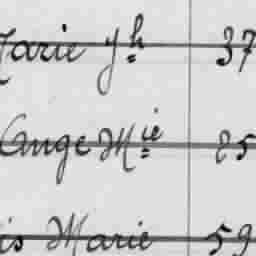 Marie Jh 37
Cange Mie 25
is Marie 59